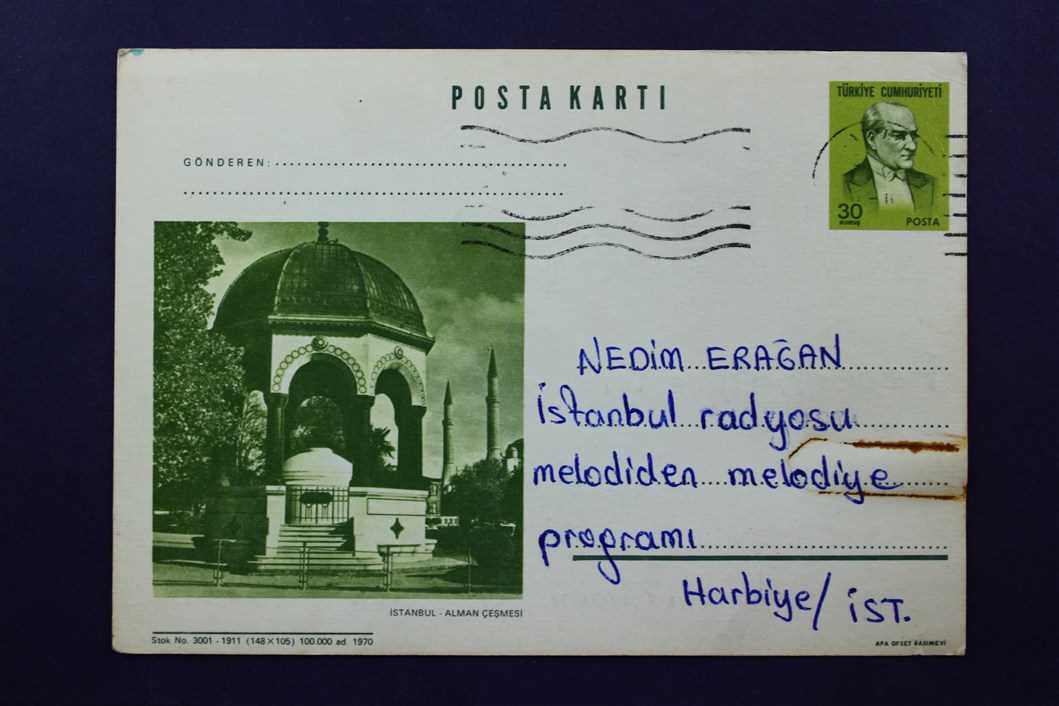 POSTA KARTI
TÜRKİYE CUMHURİYETİ
30
KURUŞ
POSTA
GÖNDEREN:
NEDİM ERAĞAN
İstanbul radyosu
melodiden melodiye
programı
Harbiye/ İST.
İSTANBUL - ALMAN ÇEŞMESİ
Stok No. 3001 - 1911 (148 X 105) 100.000 ad. 1970
APA OFSET BASIMEVİ